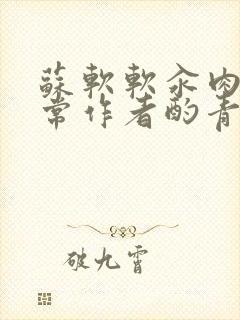 蘇軟軟汆肉
常作者酌青
破九霄